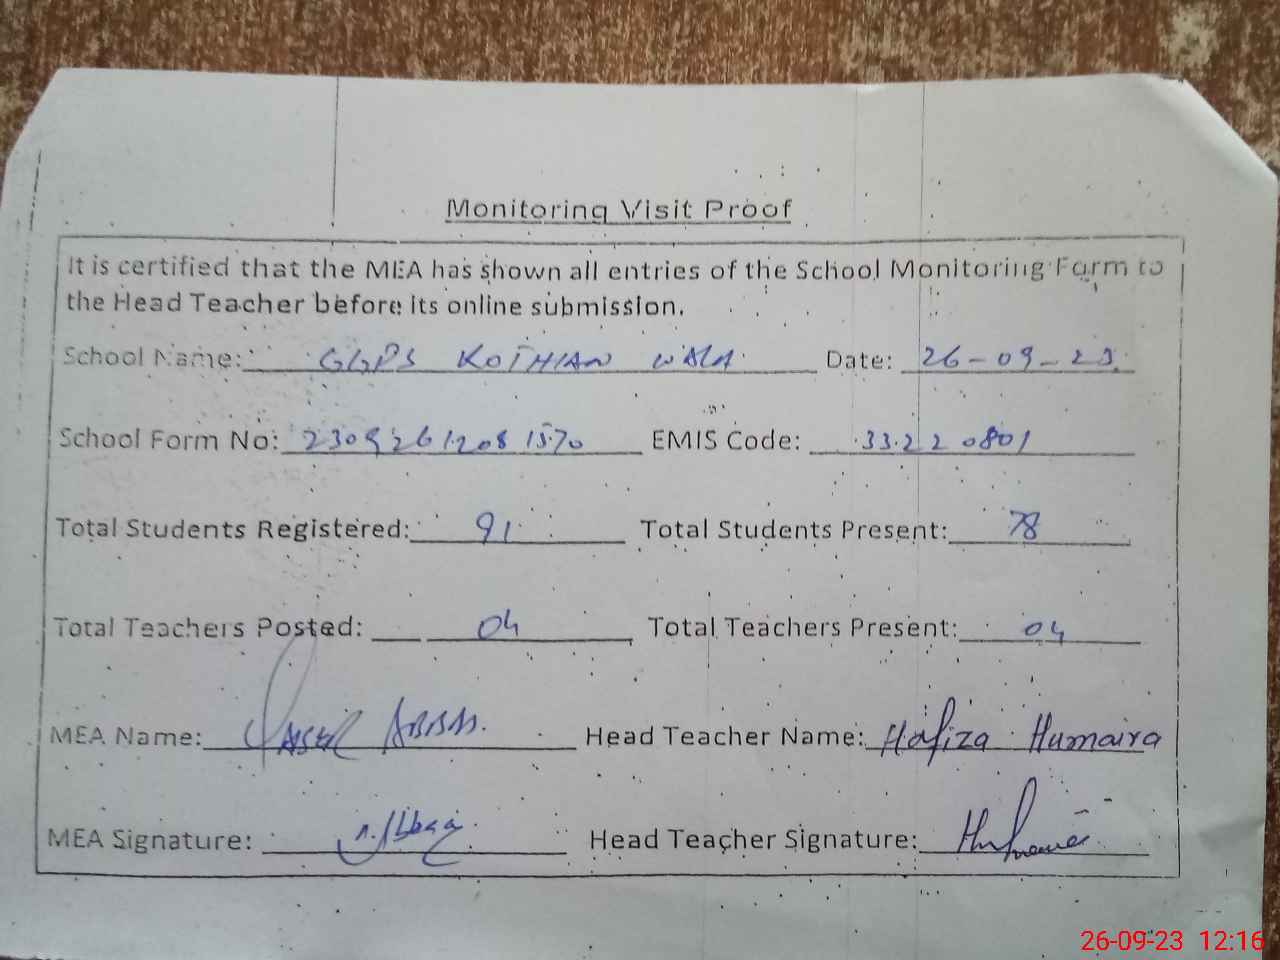 Monitoring Visit Proof
It is certified that the MEA has shown all entries of the School Monitoring Form to
the Head Teacher before its online submission.
School Name: GGPS KOTHIAN WALA Date: 26-09-23
School Form No: 2309261208 1570 EMIS Code: 33220801
Total Students Registered: 91 Total Students Present: 78
Total Teachers Posted: 04 Total Teachers Present: 04
MEA Name: YASER ABBAS Head Teacher Name: Hafiza Humaira
MEA Signature: Head Teacher Signature:
26-09-23 12:16